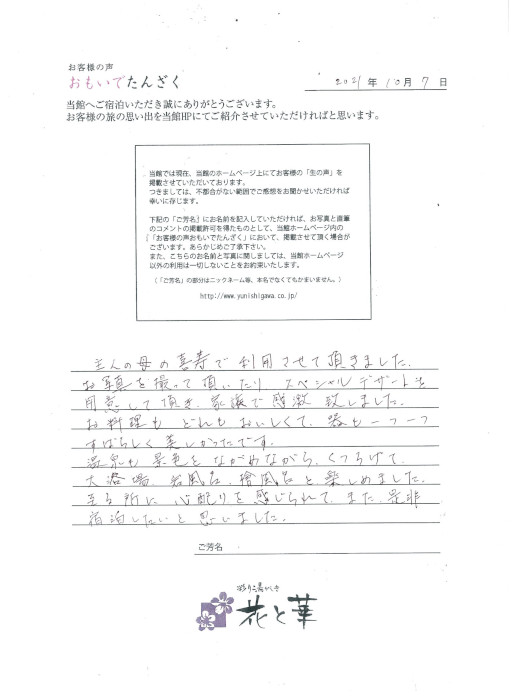 お客様の声
おもいでたんざく
2021年 10月 7日
当館へご宿泊いただき誠にありがとうございます。
お客様の旅の思い出を当館HPにてご紹介させていただければと思います。
当館では現在、当館のホームページ上にてお客様の「生の声」を
掲載させていただいております。
つきましては、不都合がない範囲でご感想をお聞かせいただければ
幸いに存じます。
下記の「ご芳名」にお名前を記入していただければ、お写真と直筆
のコメントの掲載許可を得たものとして、当館ホームページ内の
「「お客様の声おもいでたんざく」において、掲載させて頂く場合が
ございます。あらかじめご了承下さい。
また、こちらのお名前と写真に関しましては、当館ホームページ
以外の利用は一切しないことをお約束いたします。
(「ご芳名」の部分はニックネーム等、本名でなくてもかまいません。)
http://www.yunishigawa.co.jp/
主人の母の喜寿で利用させて頂きました。
お写真を撮って頂いたり、スペシャルデザートを
用意して頂き、家族で感激致しました。
お料理もどれもおいしくて、器も一つ一つ
すばらしく美しかったです。
温泉も景色をながめながら、くつろげて、
大浴場、岩風呂、檜風呂と楽しめました。
至る所に心配りを感じられて、また、是非
宿泊したいと思いました。
ご芳名
彩り湯かしき
花と華